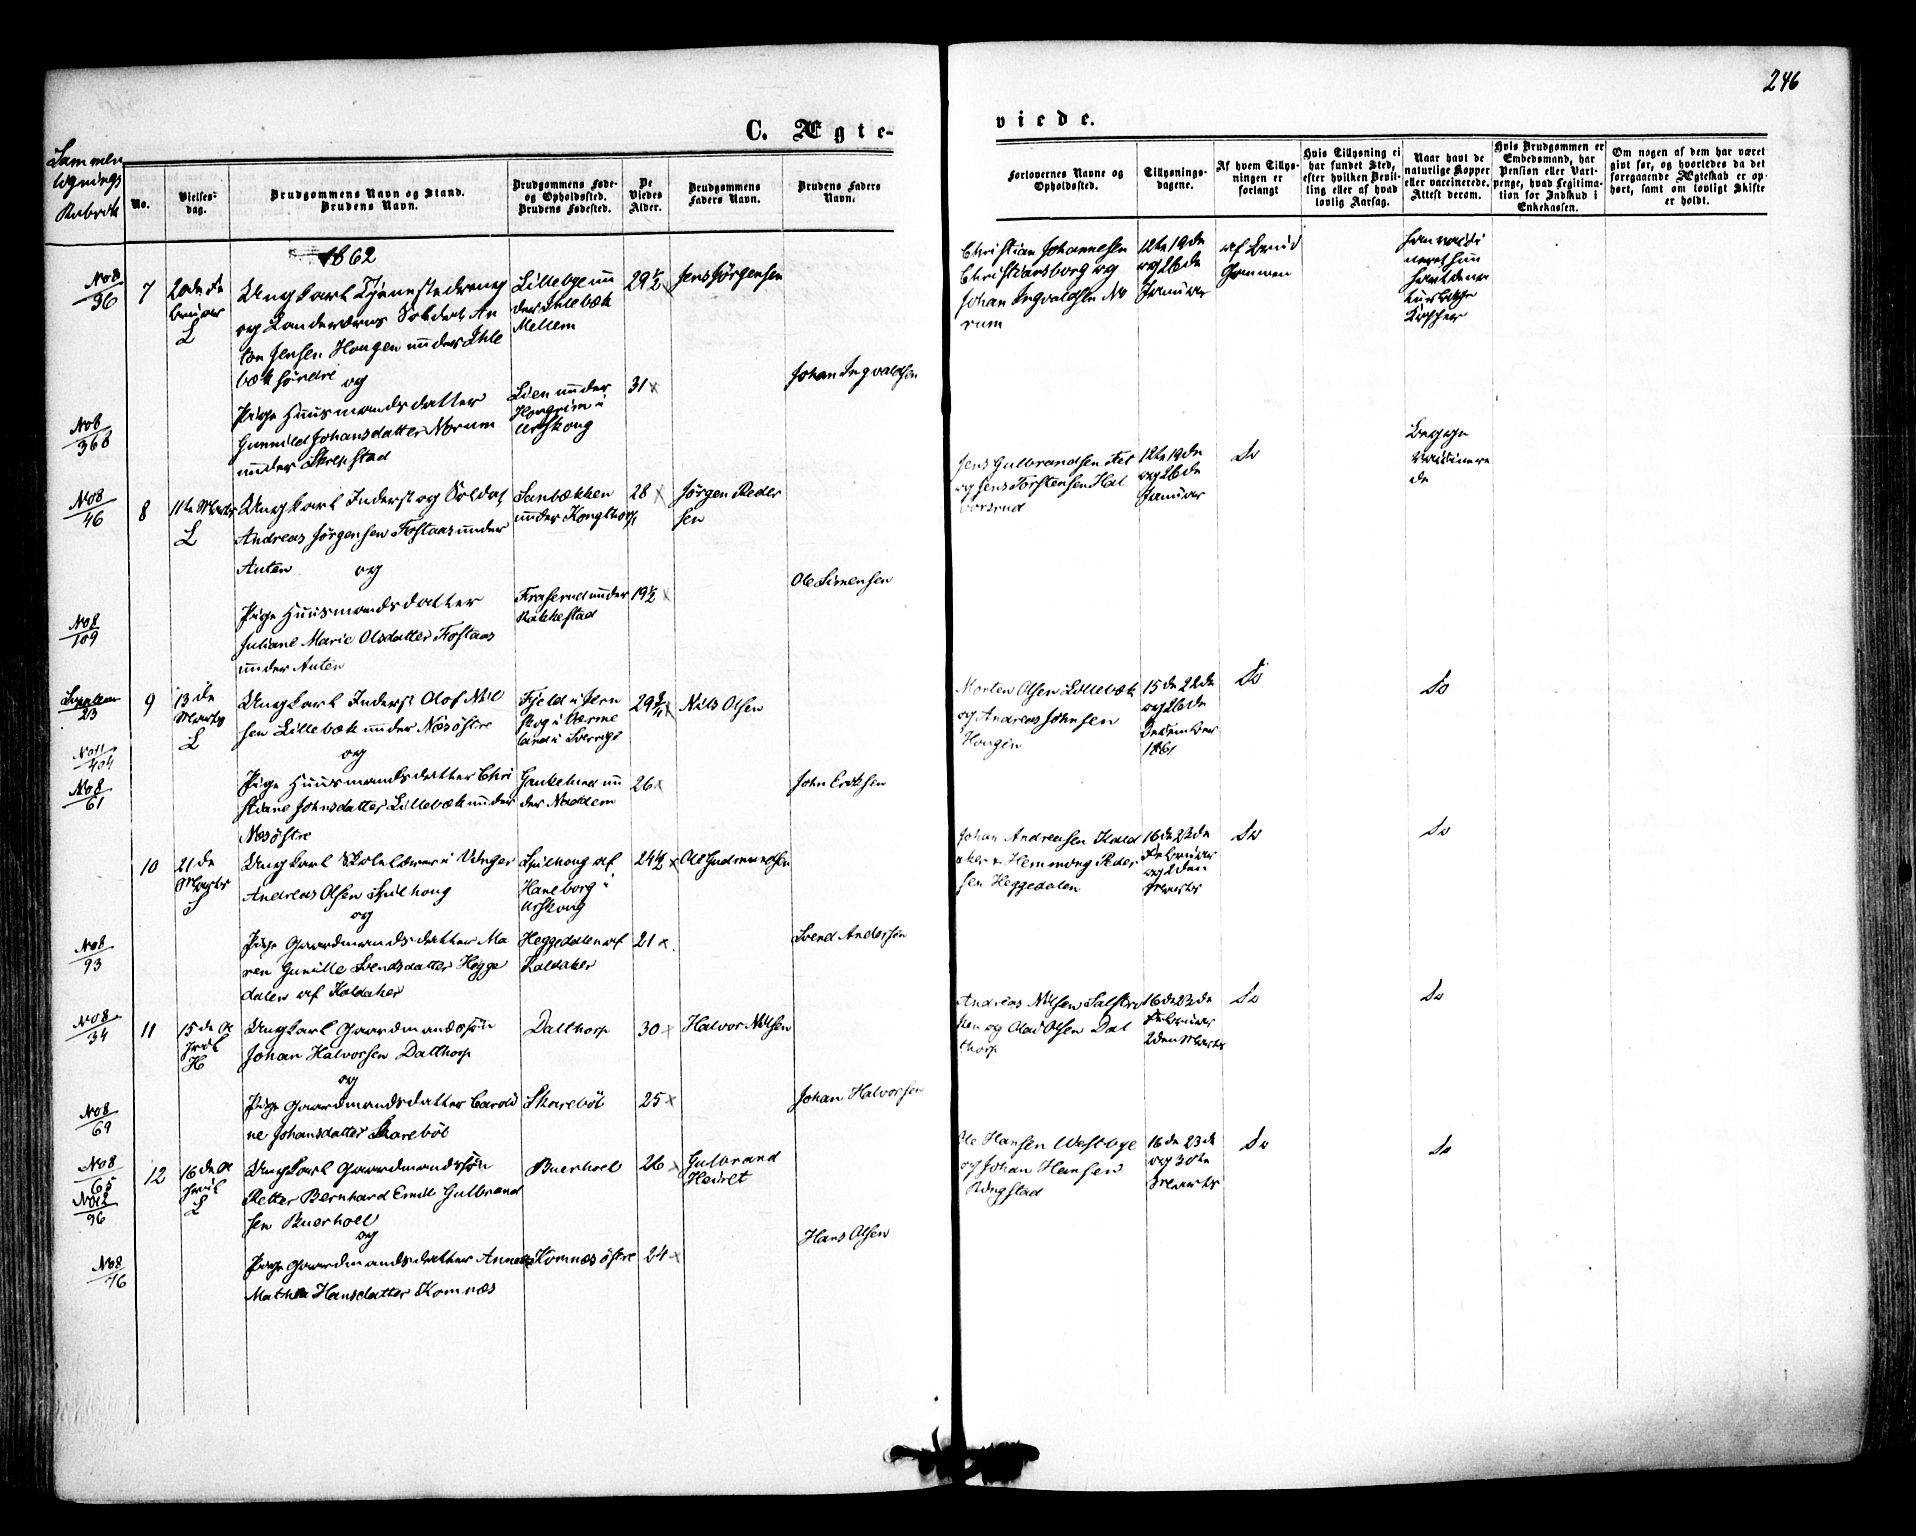 246
C. Ægte-
viede.
Sammen
lignings
Rubrik
No.
Vielses-
dag.
Brudgommens Navn og Stand.
Brudens Navn.
Brudgommens Føde-
og Opholdssted.
Brudens Fødested.
De
Viedes
Alder.
Brudgommens
Faders Navn.
Brudens Faders
Navn.
Forlovernes Navne og
Opholdssted.
Tillysnings-
dagene.
Af hvem Tillys-
ningen er
forlangt
Hvis Tillysning ei
har fundet Sted,
efter hvilken Bevil-
ling eller af hvad
lovlig Aarsag.
Naar havt de
naturlige Kopper
eller vaccinerede.
Attest derom.
Hvis Brudgommen er
Embedsmand, har
Pension eller Vart-
penge, hvad Legitima-
tion for Indskud i
Enkekassen.
Om nogen af dem har været
gift før, og hvorledes da det
foregaaende Ægteskab er op-
hørt, samt om lovligt Skifte
er holdt.
1862
No 8
36
7
20de Fe
bruar
L
Ungkarl Tjenestedreng
og Landeværns Soldat An
ton Jensen Hougen under Ihle
bæk søndre
og
Lillebye un
der Ihlebæk
Mellem
29½
Jens Jørgensen
Christian Johannesen
Christiansborg og
Johan Ingvaldsen No
rum
12te 19de
og 26de
Januar
af Brud
No 8
368
Pige Huusmandsdatter
Gunnild Johansdatter Norum
under Skrepstad
Lien under
Hougrim i
Urskoug
31
Johan Ingvaldsen
No 8
46
8
11te Marts
L
Ungkarl Inderst og Soldat
Andreas Jørgensen Fostaas under
Auten
og
Sanbækken
under Kongthorp
28
Jørgen Peder
sen
Jens Gulbrandsen
og Jens Torstensen Hal
vorsrud
12te 19de
og 26de
Januar
Do
Begge
vaccinere
de
No 8
109
Pige Huusmandsdatter
Juliane Marie Olsdatter Fostaas
under Auten
Fraserud under
Rakkestad
19½
Ole Simensen
23
9
13de
Marts
L
Ungkarl Inderst Olof Nil
sen Lillebæk under Næs østre
og
Fjeld i Jern
skog i Verme
land i Sverrige
29
Nils Olsen
Morten Olsen Lillebæk
og Andreas Johnsen
Hougen
15de 22de
og 26de
December
1861
Do
Do
No 11
404
No 8
61
Pige Huusmandsdatter Chri
stiane Johnsdatter Lillebæk under
Næs østre
Gaukelund un
der Naddem
26
John Eriksen
10
21de
Marts
S
Ungkarl Skolelærer i Vinger
Andreas Olsen Spilhoug
og
Spilhoug af
Haneborg i
Urskoug
24½
Ole Gudmundsen
Johan Andreasen Kald
aker & Hemming Peder
sen Heggedalen
16de 23de
Februar
og 2den
Marts
Do
Do
No 8
93
Pige Gaardmandsdatter Ma
ren Gunille Svendsdatter Hegge
dalen af Kaldaker
Heggedalen af
Kaldaker
21
Svend Andersen
No 8
34
11
15de A
pril
H
Ungkarl Gaardmandssøn
Johan Halvorsen Dalthorp
og
Dalthorp
30
Halvor Nilsen
Andreas Nilsen
og Olaus Olsen Dal
thorp
16de 23de
Februar
2den Marts
Do
Do
No 8
69
Pige Gaardmandsdatter Caroli
ne Johansdatter Skarebøl
Skarebøl
25
Johan Halvorsen
No 8
65
No 12
96
12
16de A
pril
L
Ungkarl Gaardmandssøn
Petter Bernhard Emil Gulbrand
sen Buerhoel
og
Buerhoel
26
Gulbrand
Ole Hansen Westbye
og Johan Hansen
Ringstad
16de 23de
og 30te
Marts
Do
Do
No 8
76
Pige Gaardmandsdatter Anne
Mathea Hansdatter Komnæs
Komnæs østre
24
Hans Olsen